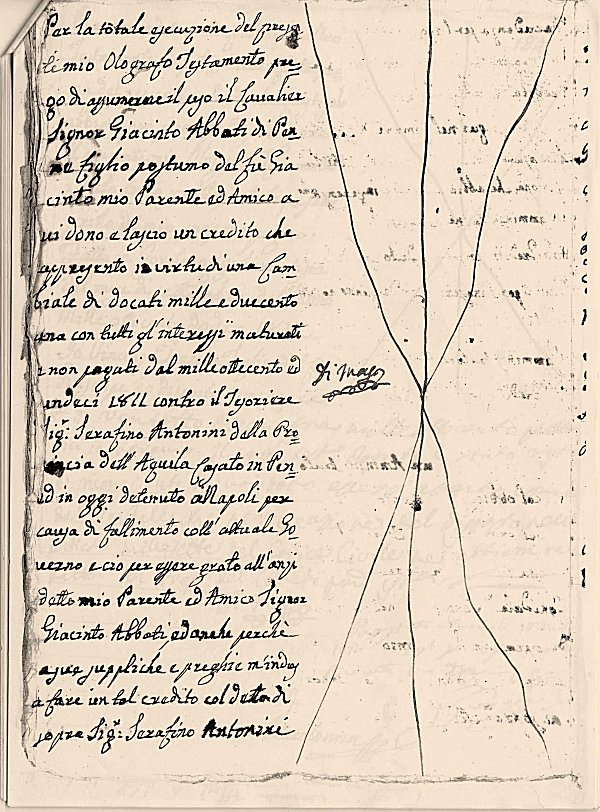 Per la totale esecuzione del presen
te mio Olografo Testamento pre=
go di assumerne il peso il Cavalier
Signor Giacinto Abbati di Pen=
ne figlio postumo del fù Gia
cinto mio Parente ed Amico a
cui dono e lascio un credito che
appresento in virtu di una Cam=
biale di docati mille e duecento
una con tutti gl'interessi maturati
e non pagati dal milleottecento ed
undeci 1811 contro il Tesoriere
Sig.r Serafino Antonini della Pro=
incia dell'Aquila Casato in Pen=
ed in oggi detenuto a Napoli per
causa di fallimento coll'attuale Go=
verno e cio per essere grato all'anzi
detto mio Parente ed Amico Signor
Giacinto Abbati ed anche perchè
a sue suppliche e preghie m'indus
a fare un tal credito col detto di
sopra Sig.r Serafino Antonini
Di Mayo